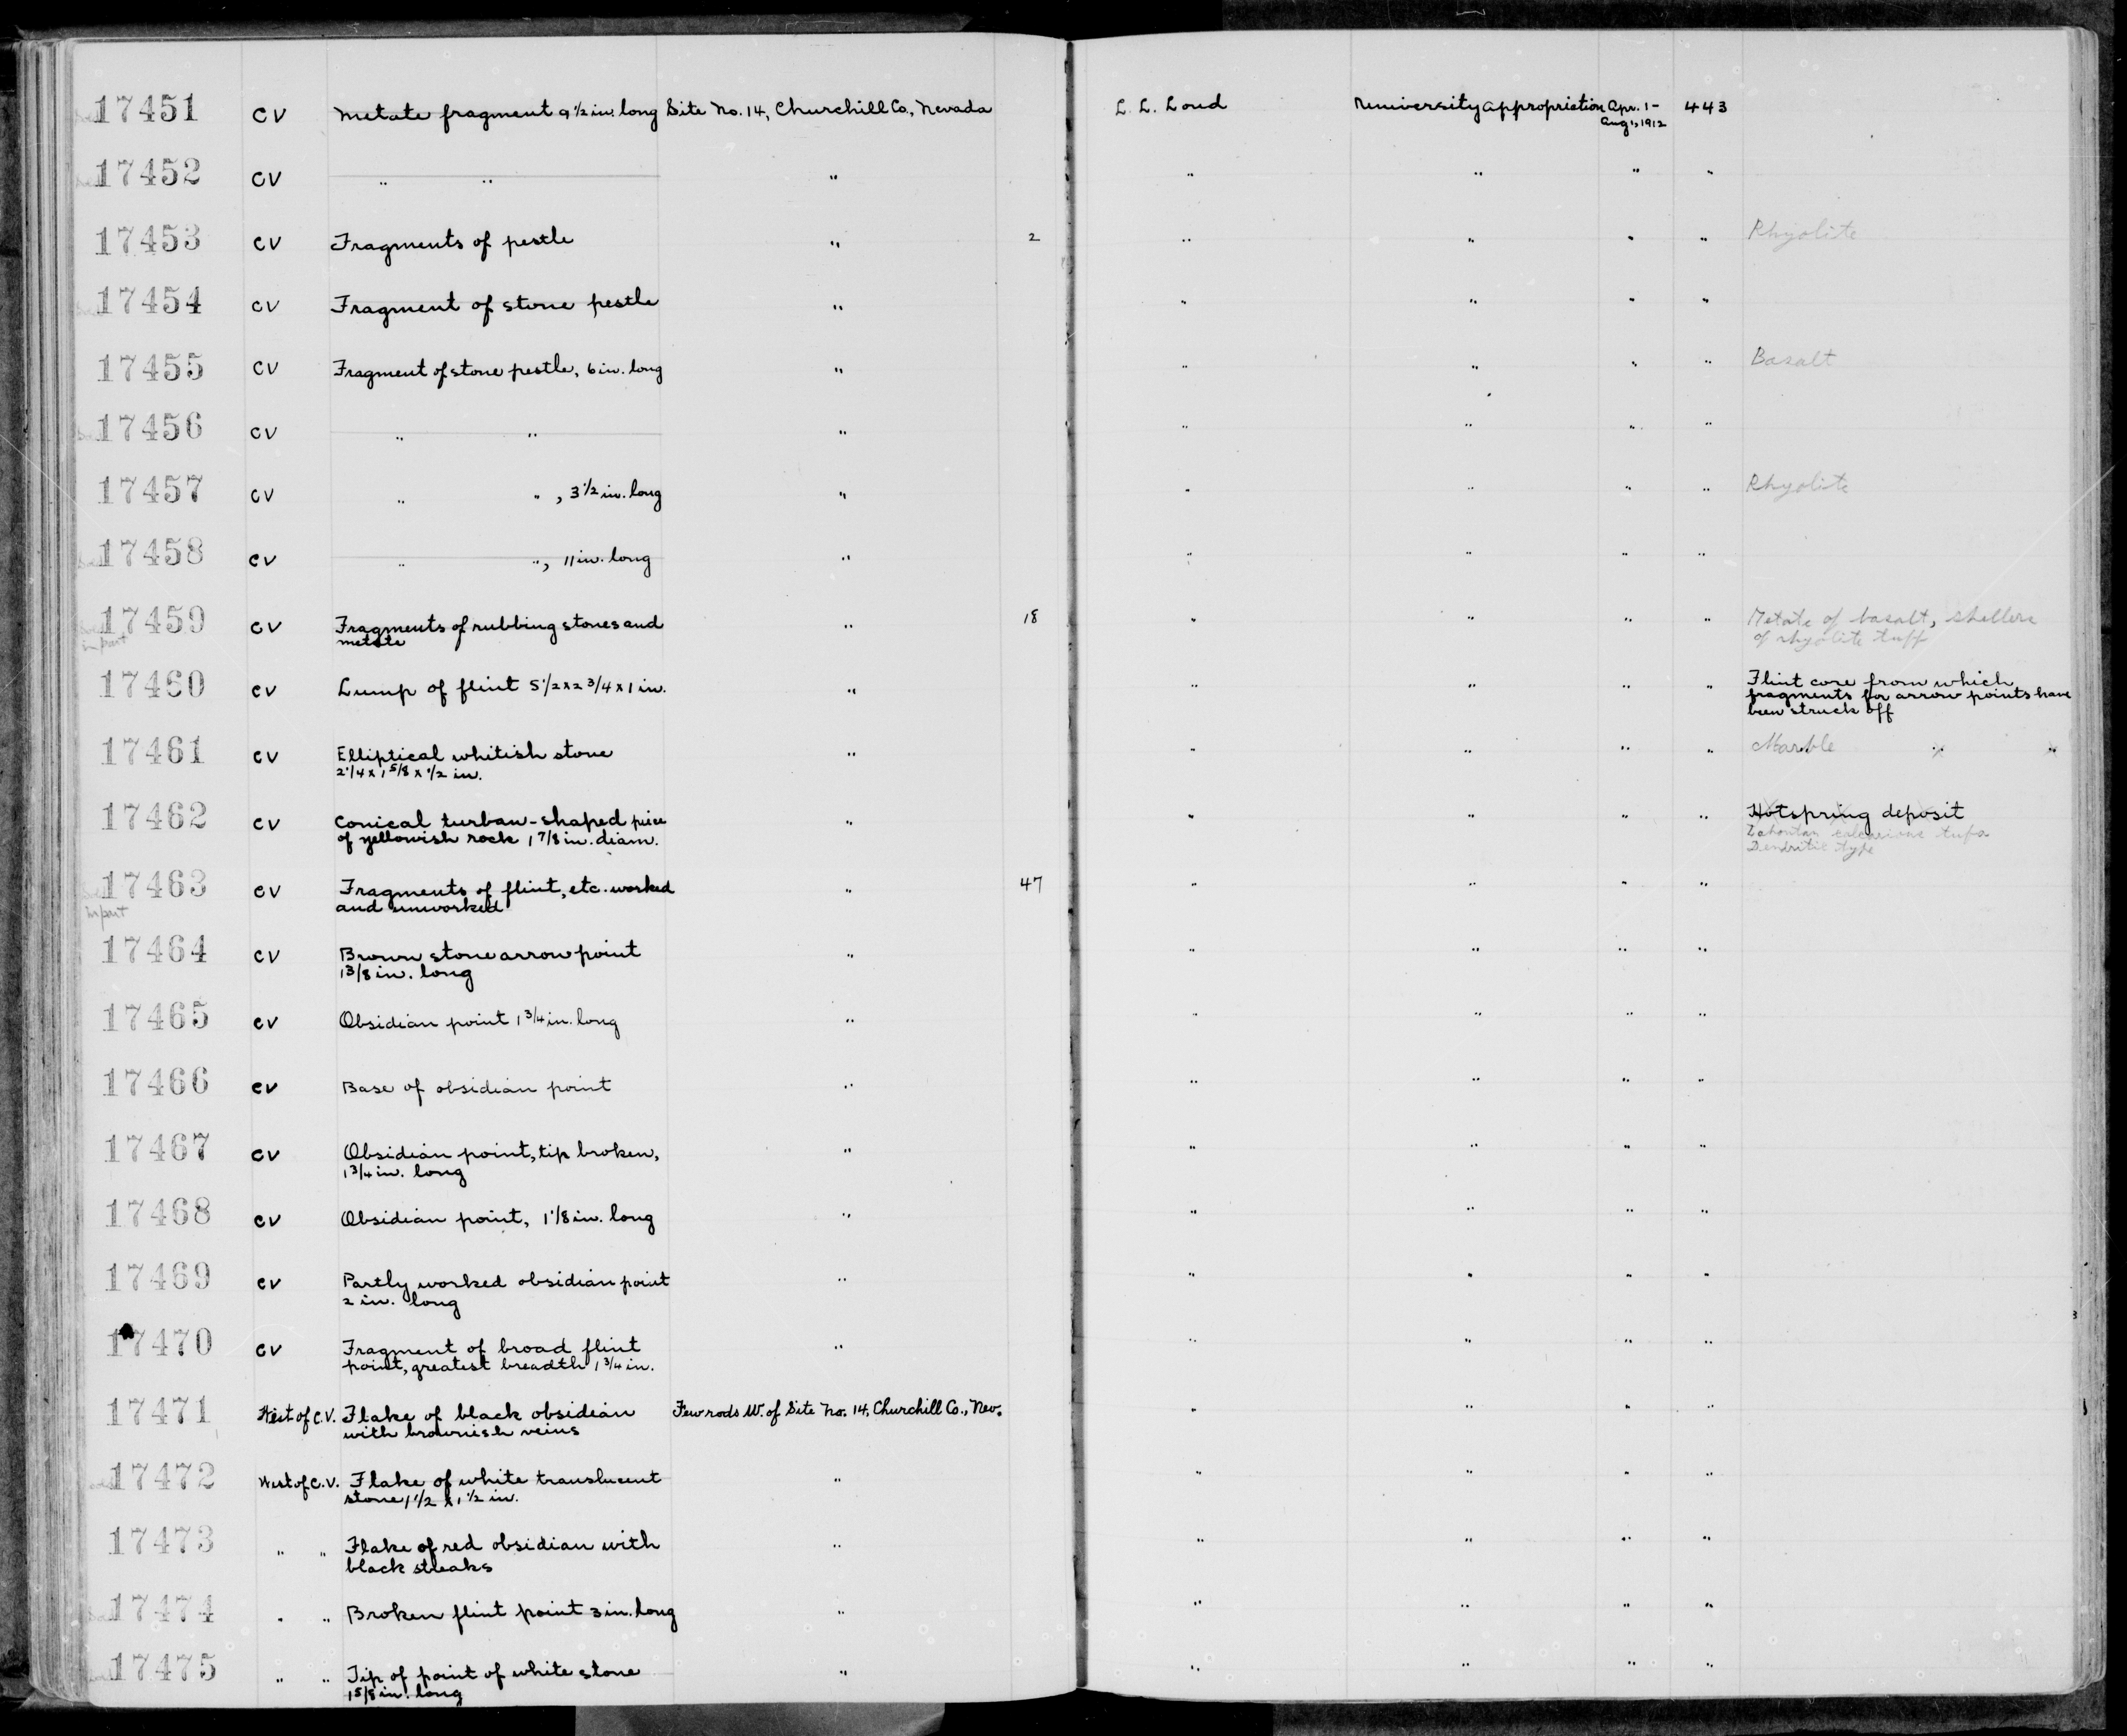 17451 CV Metate fragment 9 1/2 in. long Site No. 14, Churchill Co., Nevada L. L. Loud University Appropriation Apr. 1- 443
Aug 1, 1912
17452 CV " " " " " " "
17453 CV Fragments of pestle " 2 " " " " Rhyolite
17454 CV Fragment of stone pestle " " " " "
17455 CV Fragment of stone pestle, 6 in. long " " " " " Basalt
17456 CV " " " " " " "
17457 CV " ", 3 1/2 in. long " " " " " Rhyolite
17458 CV " ", 11 in. long " " " " "
17459 CV Fragments of rubbing stones and " 18 " " " " Metate of basalt, shellers
in part metate of rhyolite tuff
17460 CV Lump of flint 5 1/2 x 2 3/4 x 1 in. " " " " " Flint core from which
fragments for arrow points have
been struck off
17461 CV Elliptical whitish stone " " " " " Marble
2 1/4 x 1 5/8 x 1/2 in.
17462 CV Conical turban-shaped piece " " " " " Hotspring deposit
of yellowish rock 1 7/8 in. diam. Lahontan calcarious tufa
Dendritic type
17463 CV Fragments of flint, etc. worked " 47 " " " "
In part and unworked
17464 CV Brown stone arrow point " " " " "
1 3/8 in. long
17465 CV Obsidian point 1 3/4 in. long " " " " "
17466 CV Base of obsidian point " " " " "
17467 CV Obsidian point, tip broken, " " " " "
1 3/4 in. long
17468 CV Obsidian point, 1 1/8 in. long " " " " "
17469 CV Partly worked obsidian point " " " " "
2 in. long
17470 CV Fragment of broad flint " " " " "
point, greatest breadth 1 3/4 in.
17471 West of C.V. Flake of black obsidian Few rods W. of Site No. 14, Churchill Co., Nev. " " " "
with brownish veins
17472 West of C.V. Flake of white translucent " " " " "
stone 1 1/2 x 1 1/2 in.
17473 " " Flake of red obsidian with " " " " "
black streaks
17474 " " Broken flint point 3 in. long " " " " "
17475 " " Tip of point of white stone " " " " "
1 5/8 in. long